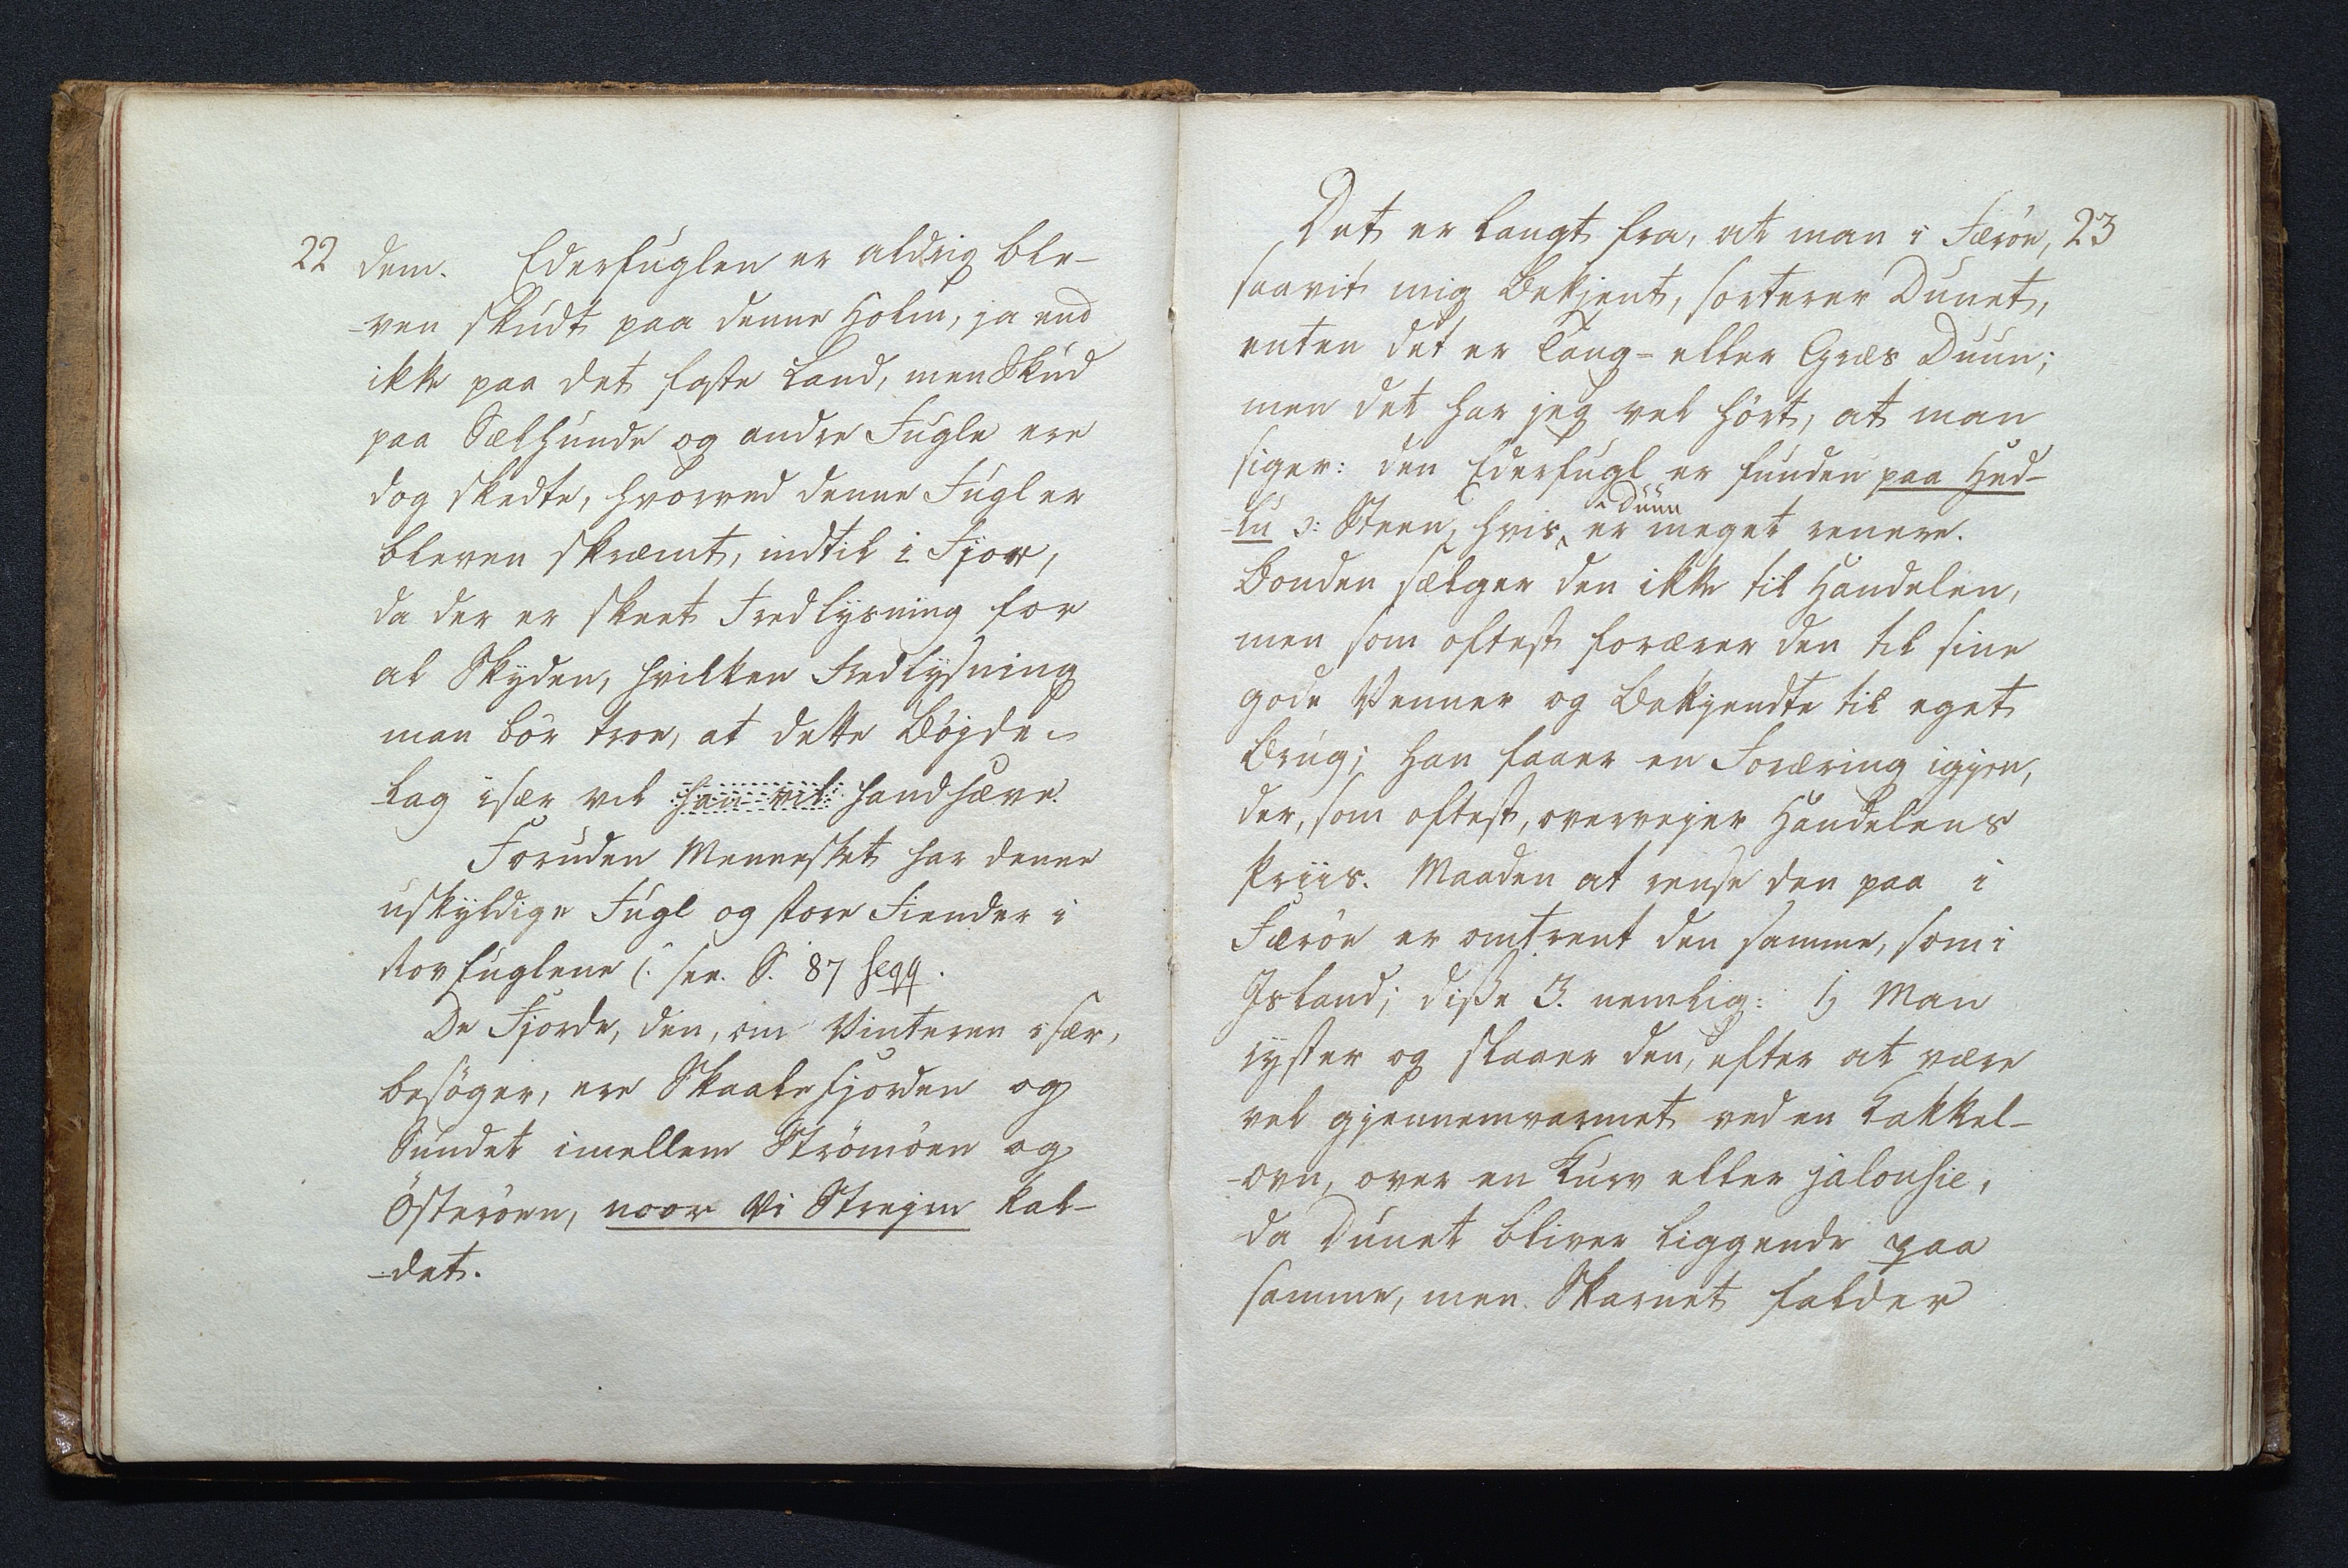 22 dem. Ederfuglen er aldrig ble-
-ven skudt paa denne Holm, ja end
ikke paa det faste Land, men Skud
paa Sælhunde og andre Fugle ere
dog skedte, hvorved denne Fugl er
bleven skræmt, indtil i Fjor,
da der er skeet Fredlysning for
al Skyden, hvilken Fredlysning
man bör troe, at dette Böjde-
Lag især vel han vil handhæve.
Foruden Mennesket har denne
uskyldige Fugl og store Fiender i
Rovfuglene (: see. S. 87 seqq.
De Fjorde, den, om Vinteren især,
besöger, ere Skaalefjorden og
Sundet imellem Strömöen og
Österöen, noor Vi Strejm kal-
-det.
Det er langt fra, at man i Færöe, 23
saavit mig bekjent, sorterer Dunet,
enten det er Tang- eller Græs Duun;
men det har jeg vel hört, at man
siger: den Ederfugl er funden paa Hed-
-lu ɔ: Steen, hvis Duun er meget renere.
Bonden sælger den ikke til Handelen,
men som oftest forærer den til sine
gode Venner og Bekjendte til eget
Brug; han faaer en Foræring igjen,
der, som oftest, overvejer Handelens
Priis. Maaden at rense den paa i
Færöe er omtrent den samme, som i
Island; disse 3. nemlig: 1) Man
ryster og slaaer den, efter at være
vel gjennemvarmet ved en Kakkel-
-ovn, over en Kurv eller jalousie,
da Dunet bliver liggende paa
samme, men Skarnet falder